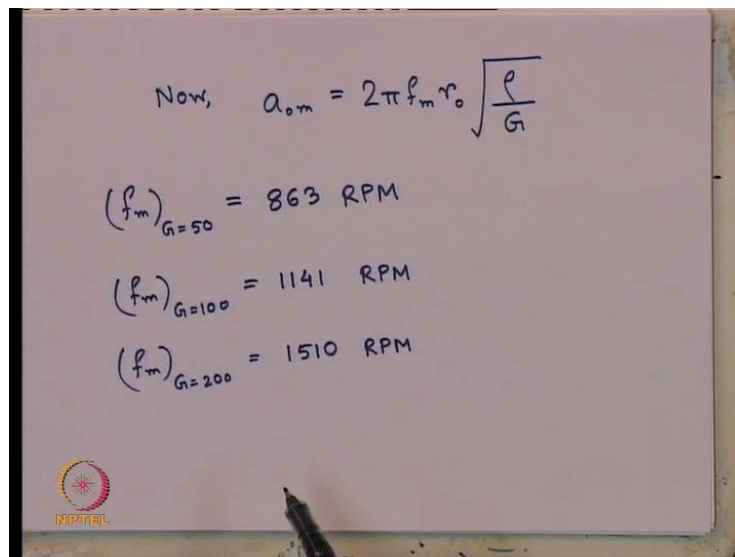 Now, a₀ₘ = 2π fₘ r₀ √(ρ/G)
(fₘ)G=50 = 863 RPM
(fₘ)G=100 = 1141 RPM
(fₘ)G=200 = 1510 RPM
NPTEL